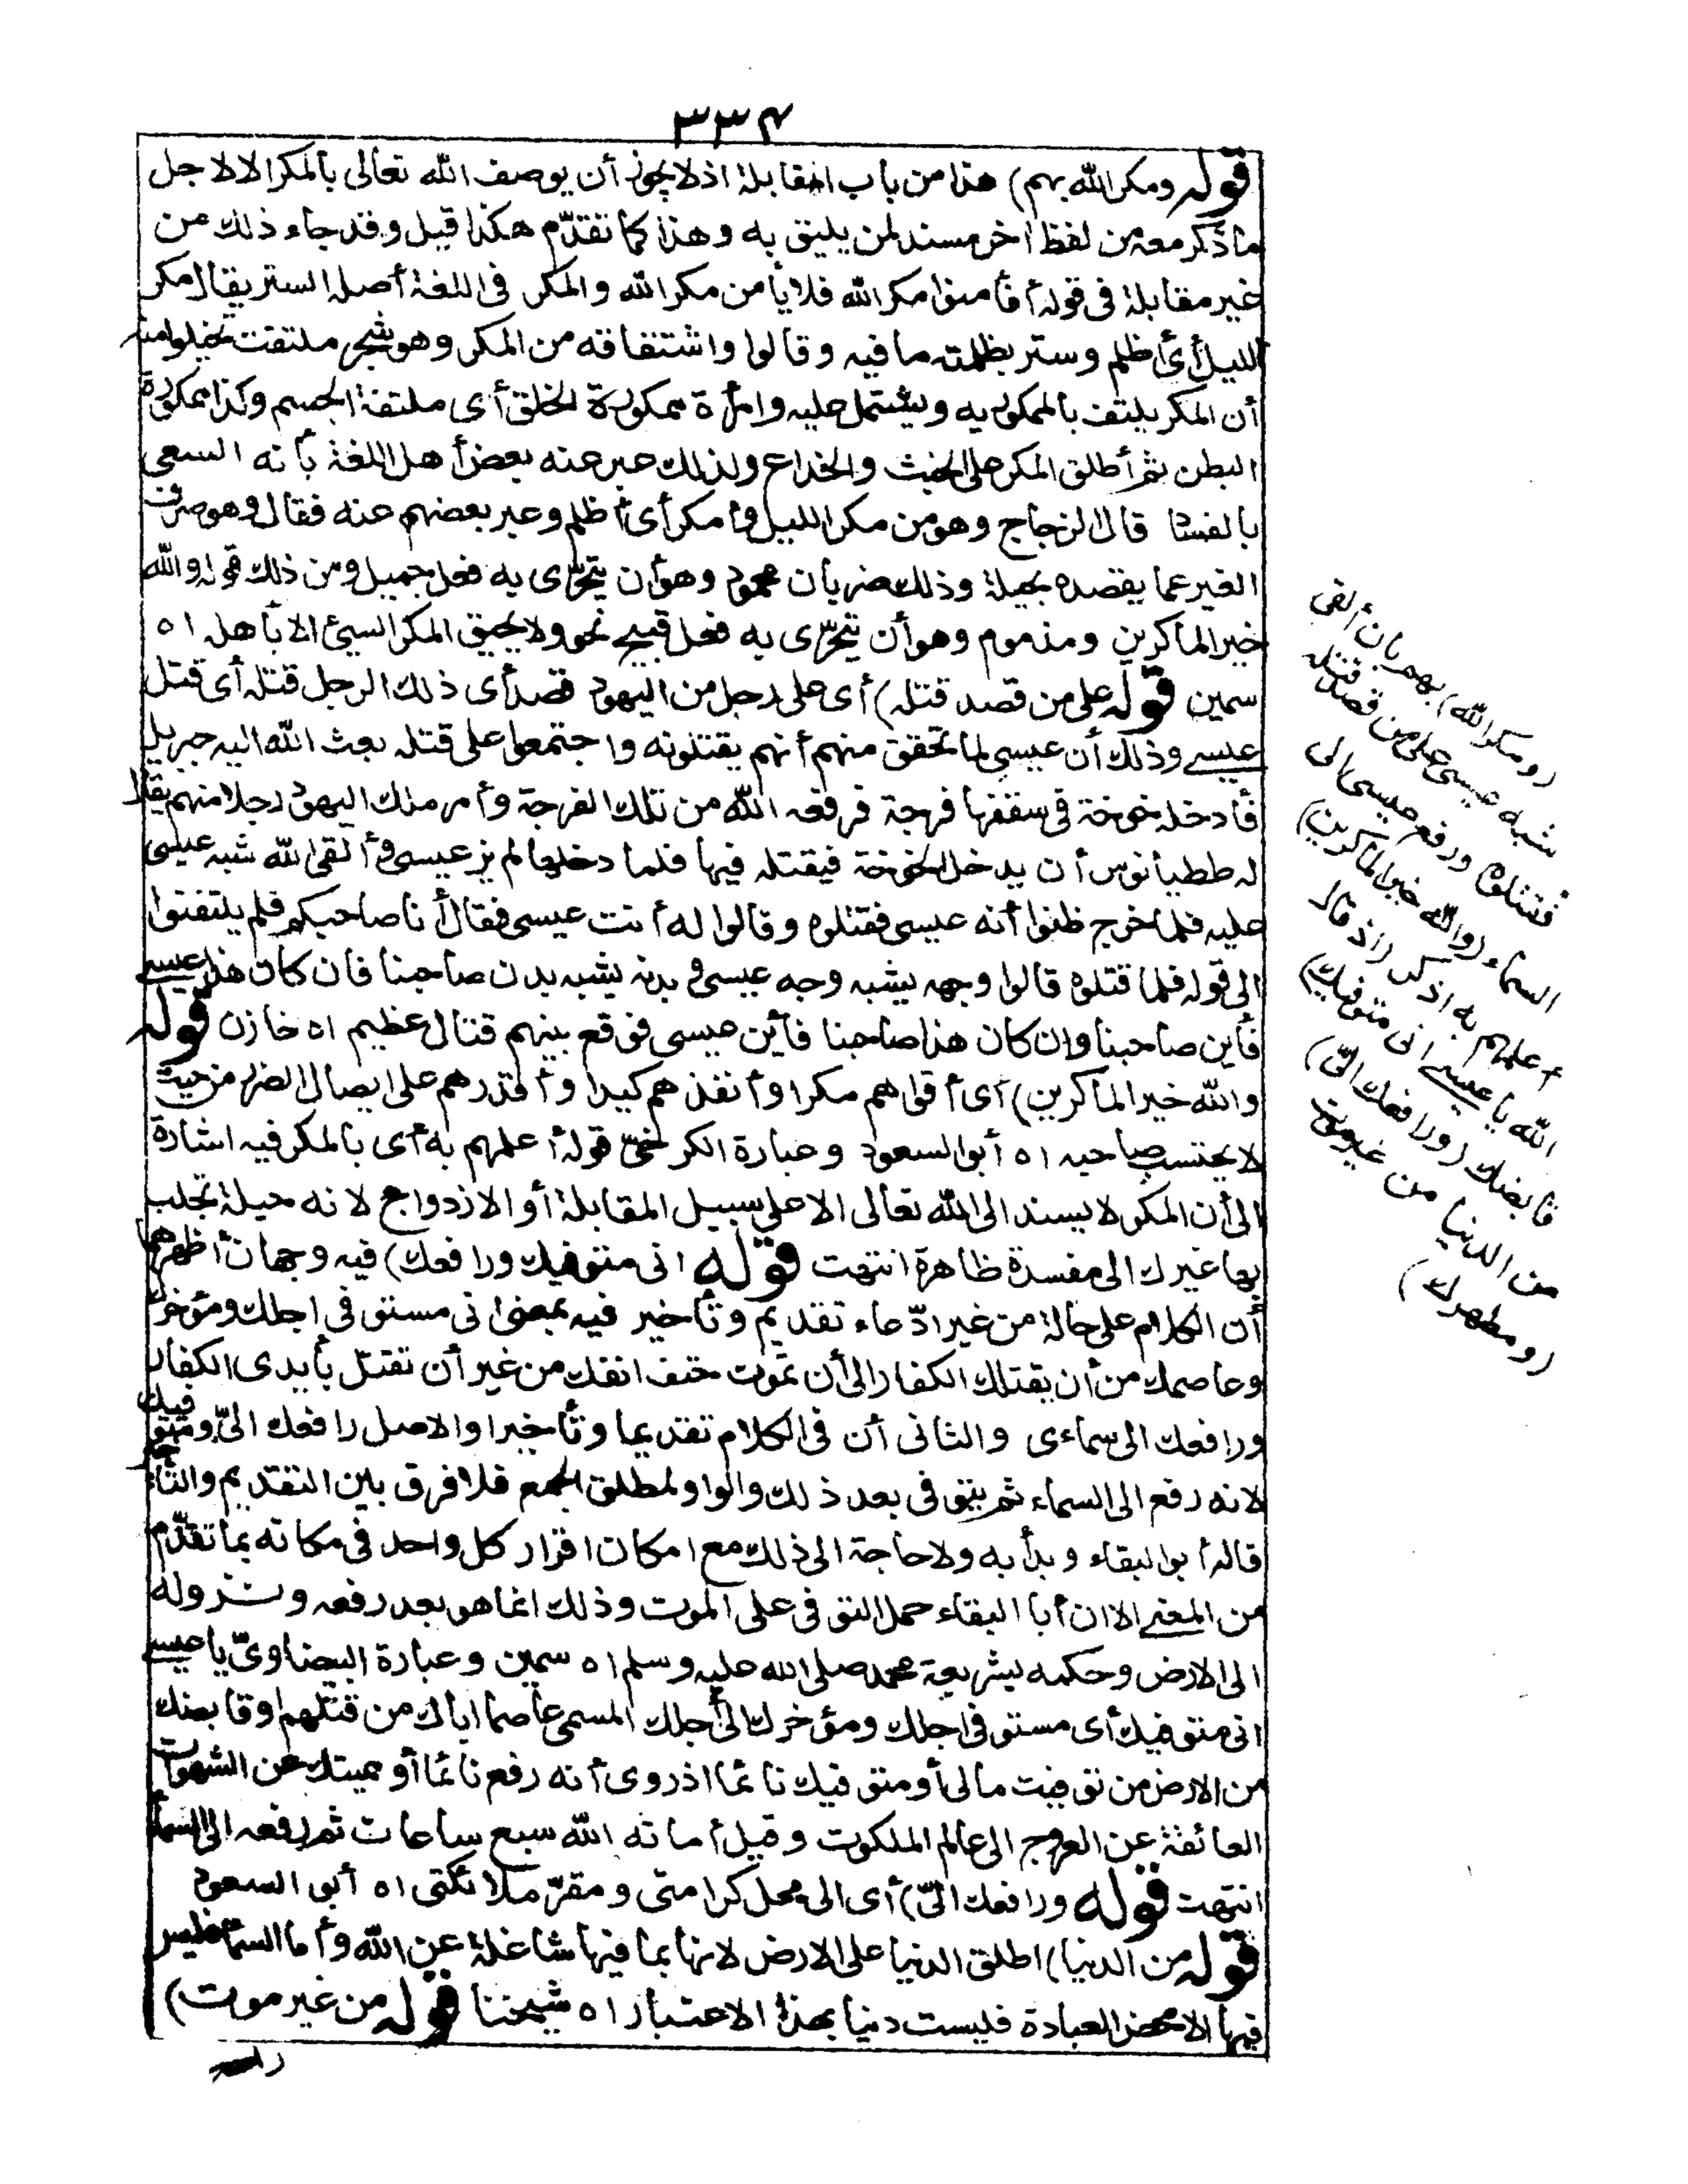 ٣٣٤
قوله ومكر الله بهم) هذا من باب المقابلة اذ لا يجوز أن يوصف الله تعالى بالمكر الا لاجل
ما ذكر معه من لفظ اخر مسند لمن يليق به وهذا كما تقدّم هكذا قيل وقد جاء ذلك من
غير مقابلة فى قوله أفأمنوا مكر الله فلا يأمن مكر الله والمكر فى اللغة أصله الستر يقال مكر
الليل أى أظلم وستر بظلمته ما فيه وقالوا واشتقاقه من المكر وهو شجر ملتفت تخيلوا منه
أن المكر يلتف بالممكور به ويشتمل عليه وامرأة ممكورة الخلق أى ملتفة الجسم وكذا ممكورة
البطن ثم أطلق المكر على الخبث والخداع ولذلك عبر عنه بعض أهل اللغة بأنه السعى
بالفساد قال الزجاج وهو من مكر الليل وأمكر أى أظلم وعبر بعضهم عنه فقال وهو صرف
الغير عما يقصده بحيلة وذلك ضربان محمود وهو أن يتحرّى به فعل جميل ومن ذلك قوله والله
خير الماكرين ومذموم وهو أن يتحرّى به فعل قبيح نحو ولا يحيق المكر السيئ الا بأهله اه
سمين قوله على من قصد قتله) أى على رجل من اليهود قصد أى ذلك الرجل قتله أى قتل
عيسى وذلك أن عيسى لما تحقق منهم أنهم يقتلونه واجتمعوا على قتله بعث الله اليه جبريل
فأدخله خوخة فى سقفها فرجة فرفعه الله من تلك الفرجة وأمر ملك اليهود رجلا منهم يقال
له ططيانوس أن يدخل الخوخة فيقتله فيها فلما دخلها لم ير عيسى وألقى الله شبه عيسى
عليه فلما خرج ظنوا أنه عيسى فقتلوه وقالوا له أنت عيسى فقال أنا صاحبكم فلم يلتفتوا
الى قوله فلما قتلوه قالوا وجهه يشبه وجه عيسى وبدنه يشبه بدن صاحبنا فان كان هذا عيسى
فأين صاحبنا وان كان هذا صاحبنا فأين عيسى فوقع بينهم قتال عظيم اه خازن قوله
والله خير الماكرين) أى أقواهم مكرا وأنفذهم كيدا وأقدرهم على ايصال الضرر من حيث
لا يحتسب صاحبه اه أبو السعود وعبارة الكرخىّ قوله أعلمهم به أى بالمكر فيه اشارة
الى أن المكر لا يسند الى الله تعالى الا على سبيل المقابلة أو الازدواج لانه حيلة تجلب
بها غيرك الى مفسدة ظاهرة انتهت قوله انى متوفيك ورافعك) فيه وجهان أظهرهما
أن الكلام على حاله من غير ادّعاء تقديم وتأخير فيه بمعنى انى مستوفى اجلك ومؤخرك
وعاصمك من أن يقتلك الكفار الى أن تموت حتف انفك من غير أن تقتل بأيدى الكفار
ورافعك الى سماءى والثانى أن فى الكلام تقديما وتأخيرا والاصل رافعك الىّ ومتوفيك
لانه رفع الى السماء ثم يتوفى بعد ذلك والواو لمطلق الجمع فلا فرق بين التقديم والتأخير
قاله أبو البقاء وبدأ به ولا حاجة الى ذلك مع امكان اقرار كل واحد فى مكانه بما تقدّم
من المعنى الا ان أبا البقاء حمل التوفى على الموت وذلك انما هو بعد رفعه ونزوله
الى الارض وحكمه بشريعة محمد صلى الله عليه وسلم اه سمين وعبارة البيضاوىّ يا عيسى
انى متوفيك أى مستوفى اجلك ومؤخرك الى أجلك المسمى عاصما اياك من قتلهم او قابضك
من الارض من توفيت مالى أو متوفيك نائما اذ روى أنه رفع نائما أو مميتك عن الشهوات
العائقة عن العروج الى عالم الملكوت وقيل أماته الله سبع ساعات ثم رفعه الى السماء
انتهت قوله ورافعك الىّ) أى الى محل كرامتى ومقرّ ملائكتى اه أبو السعود
قوله من الدنيا) اطلق الدنيا على الارض لانها بما فيها شاغلة عن الله وأما السماء فليس
فيها الا محض العبادة فليست دنيا بهذا الاعتبار اه شيخنا قوله من غير موت)
(ومكر الله) بهم بان ألقى
شبه عيسى على من قصد قتله
فقتلوه ورفع عيسى الى
السماء (والله خير الماكرين)
أعلمهم به اذكر (اذ قال
الله يا عيسى انى متوفيك)
قابضك (ورافعك الىّ)
من الدنيا من غير موت
(ومطهرك)